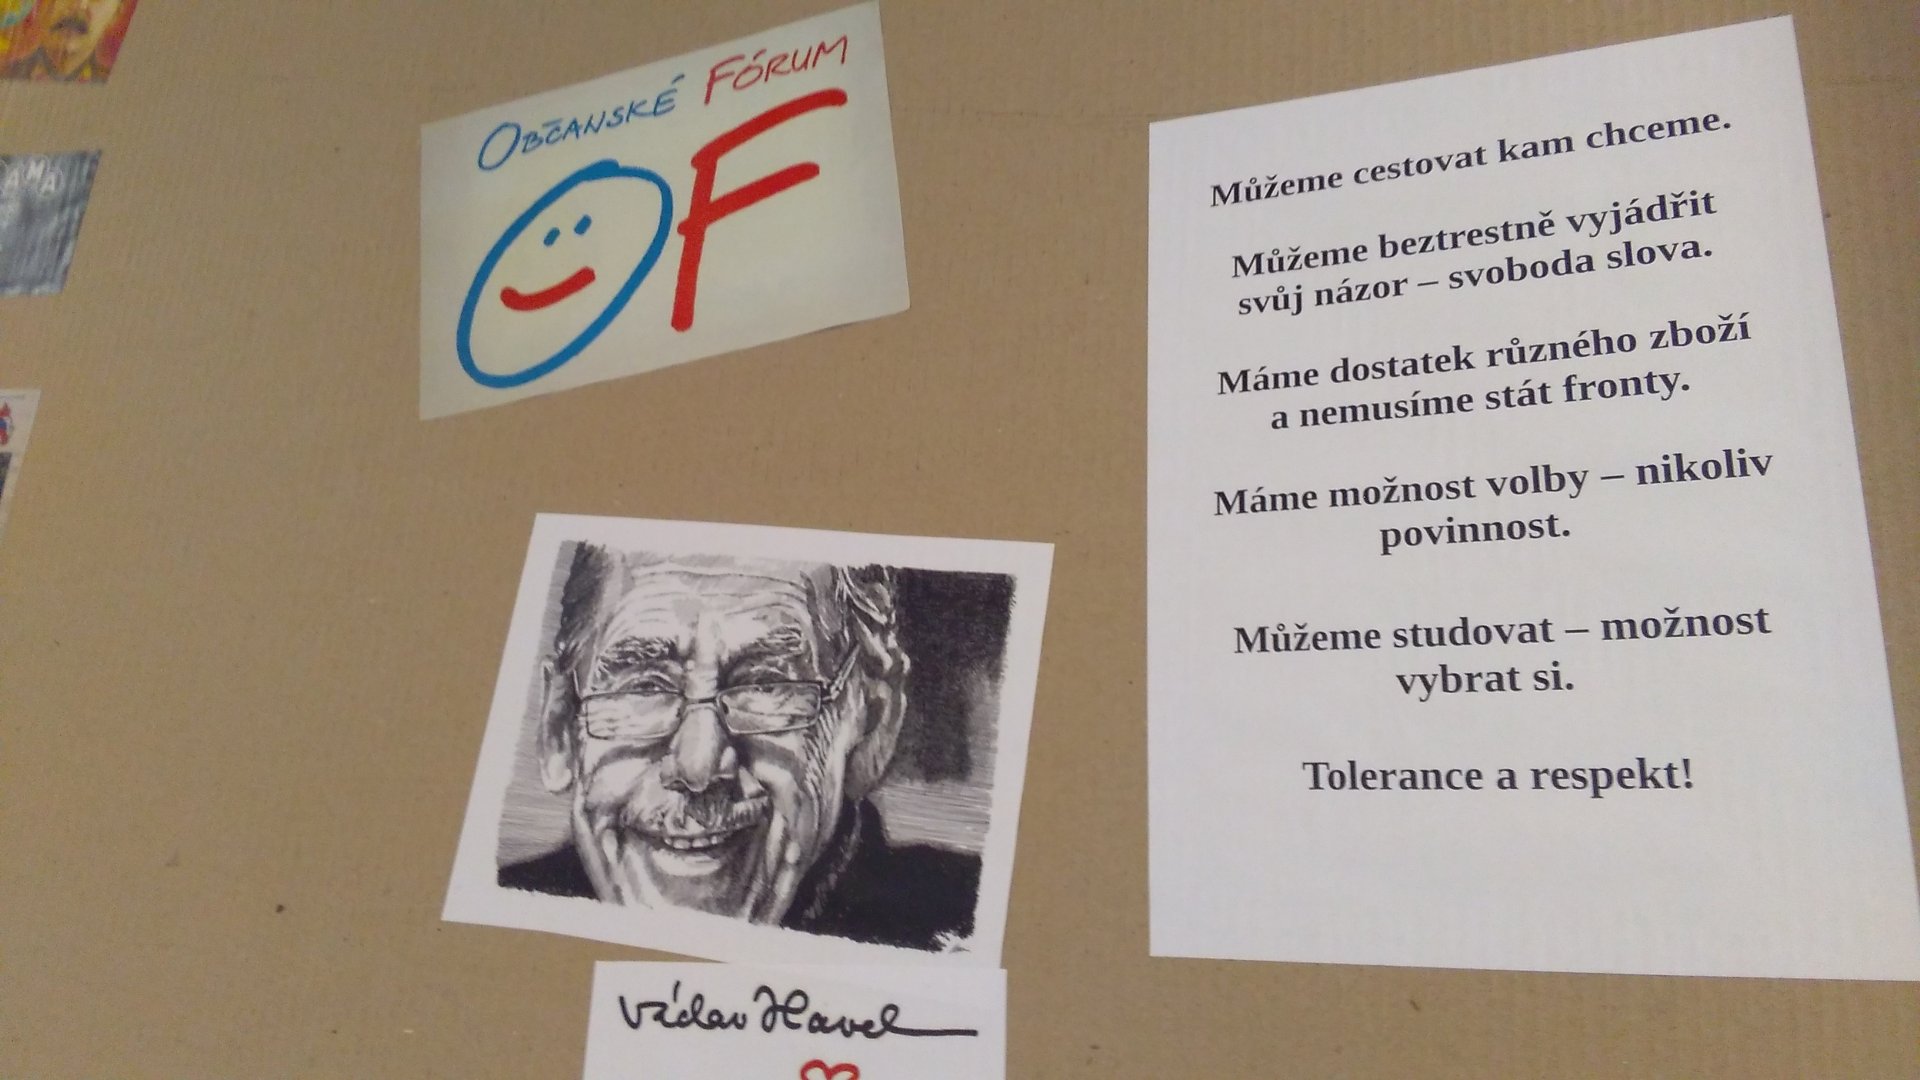 OBČANSKÉ FÓRUM
OF
Václav Havel
Můžeme cestovat kam chceme.
Můžeme beztrestně vyjádřit
svůj názor – svoboda slova.
Máme dostatek různého zboží
a nemusíme stát fronty.
Máme možnost volby – nikoliv
povinnost.
Můžeme studovat – možnost
vybrat si.
Tolerance a respekt!